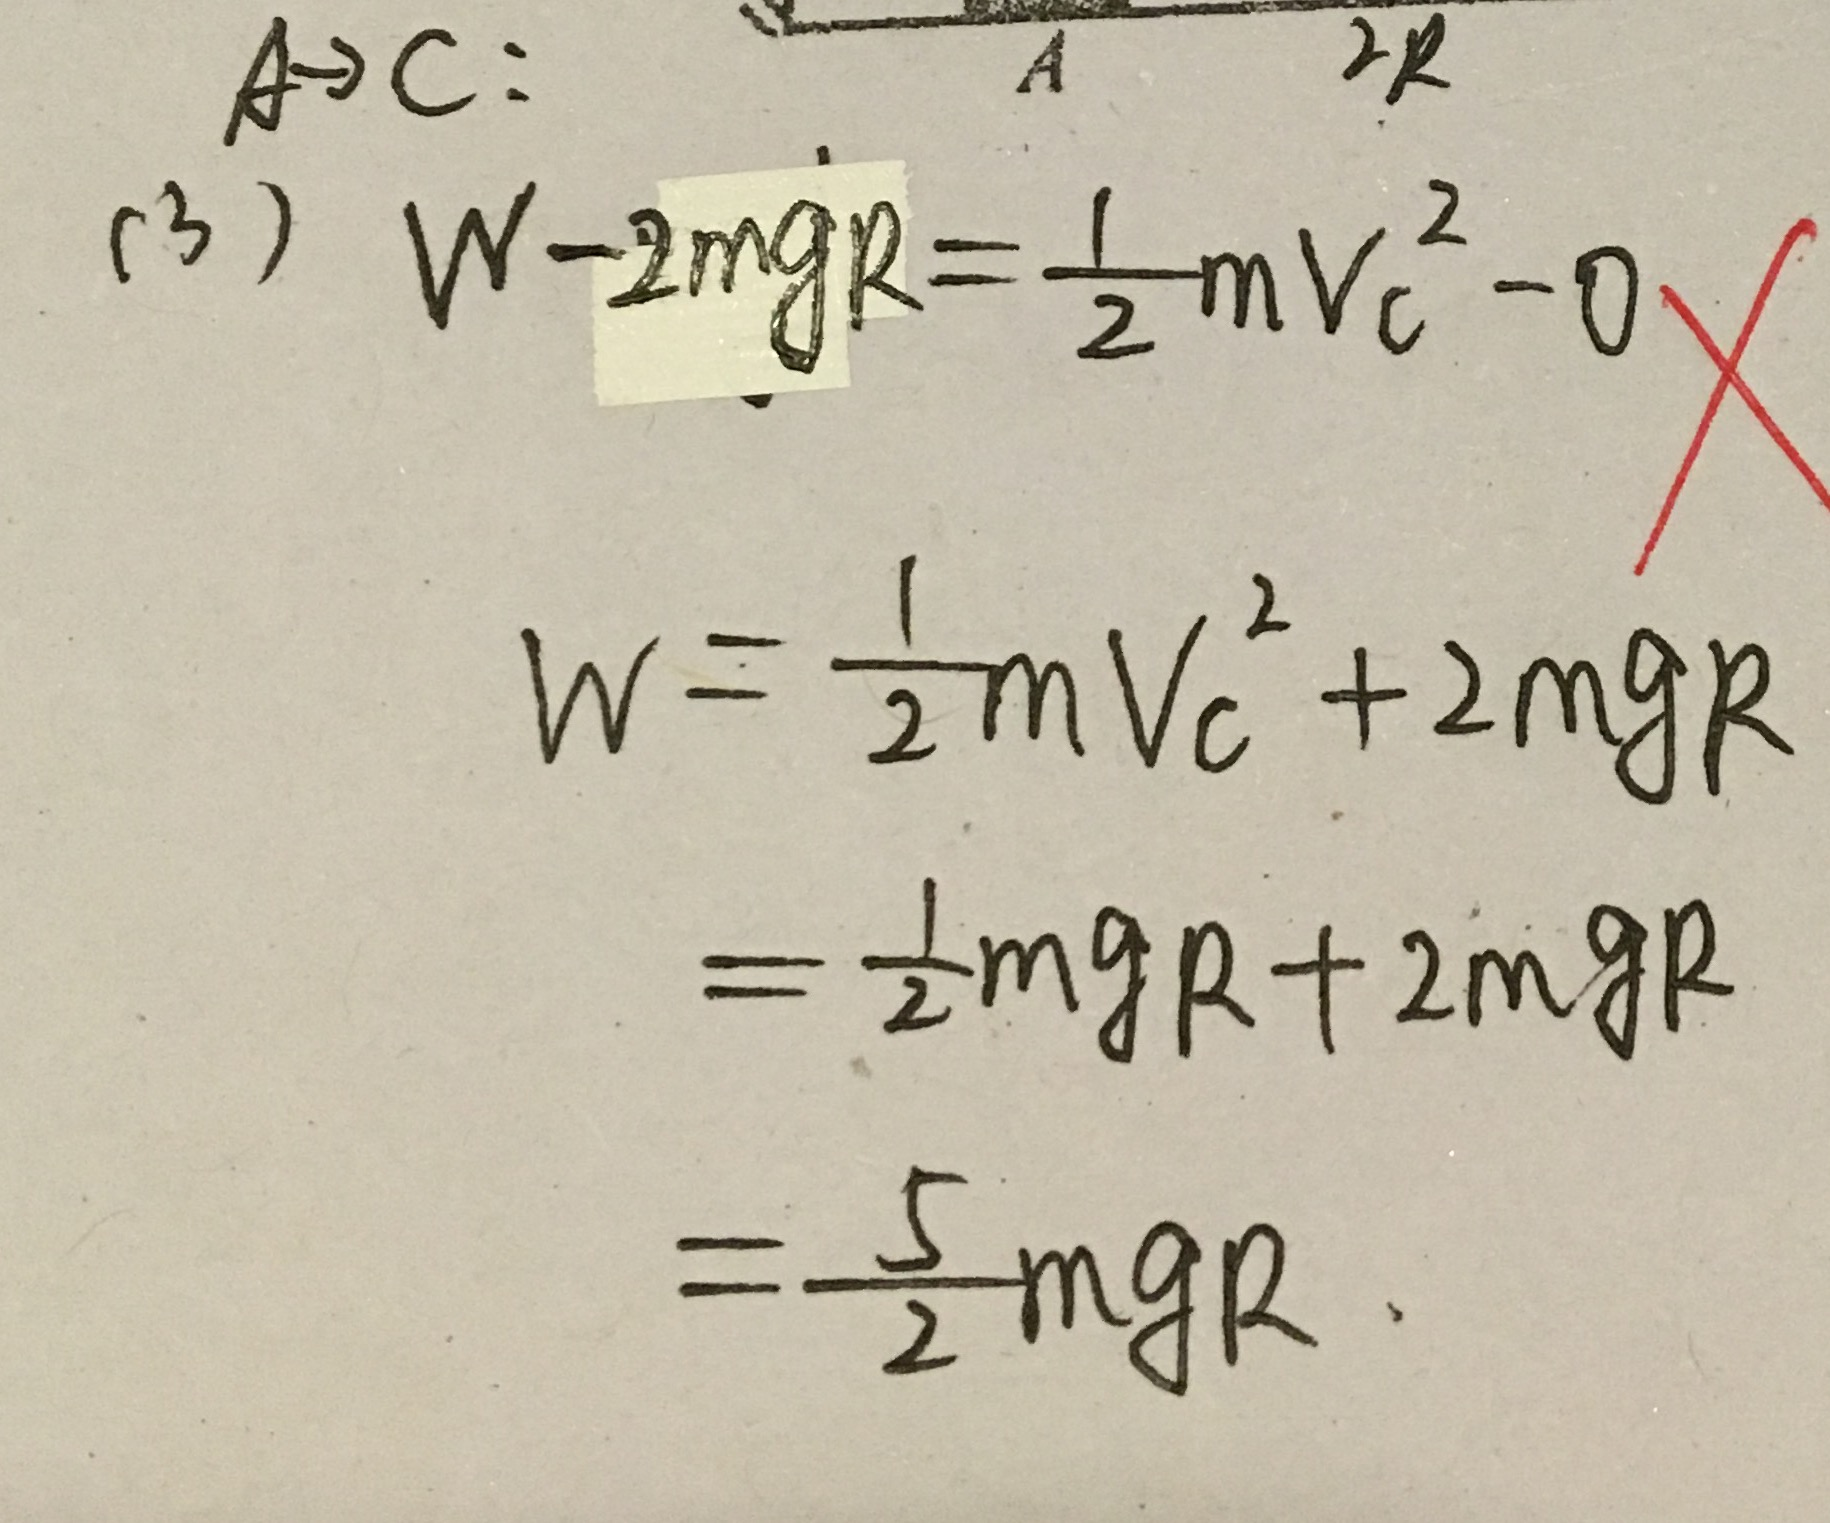 A 2R
A→C:
(3) W-2mgR=\frac{1}{2}mV_C^2-0
W=\frac{1}{2}mV_C^2+2mgR
=\frac{1}{2}mgR+2mgR
=\frac{5}{2}mgR.